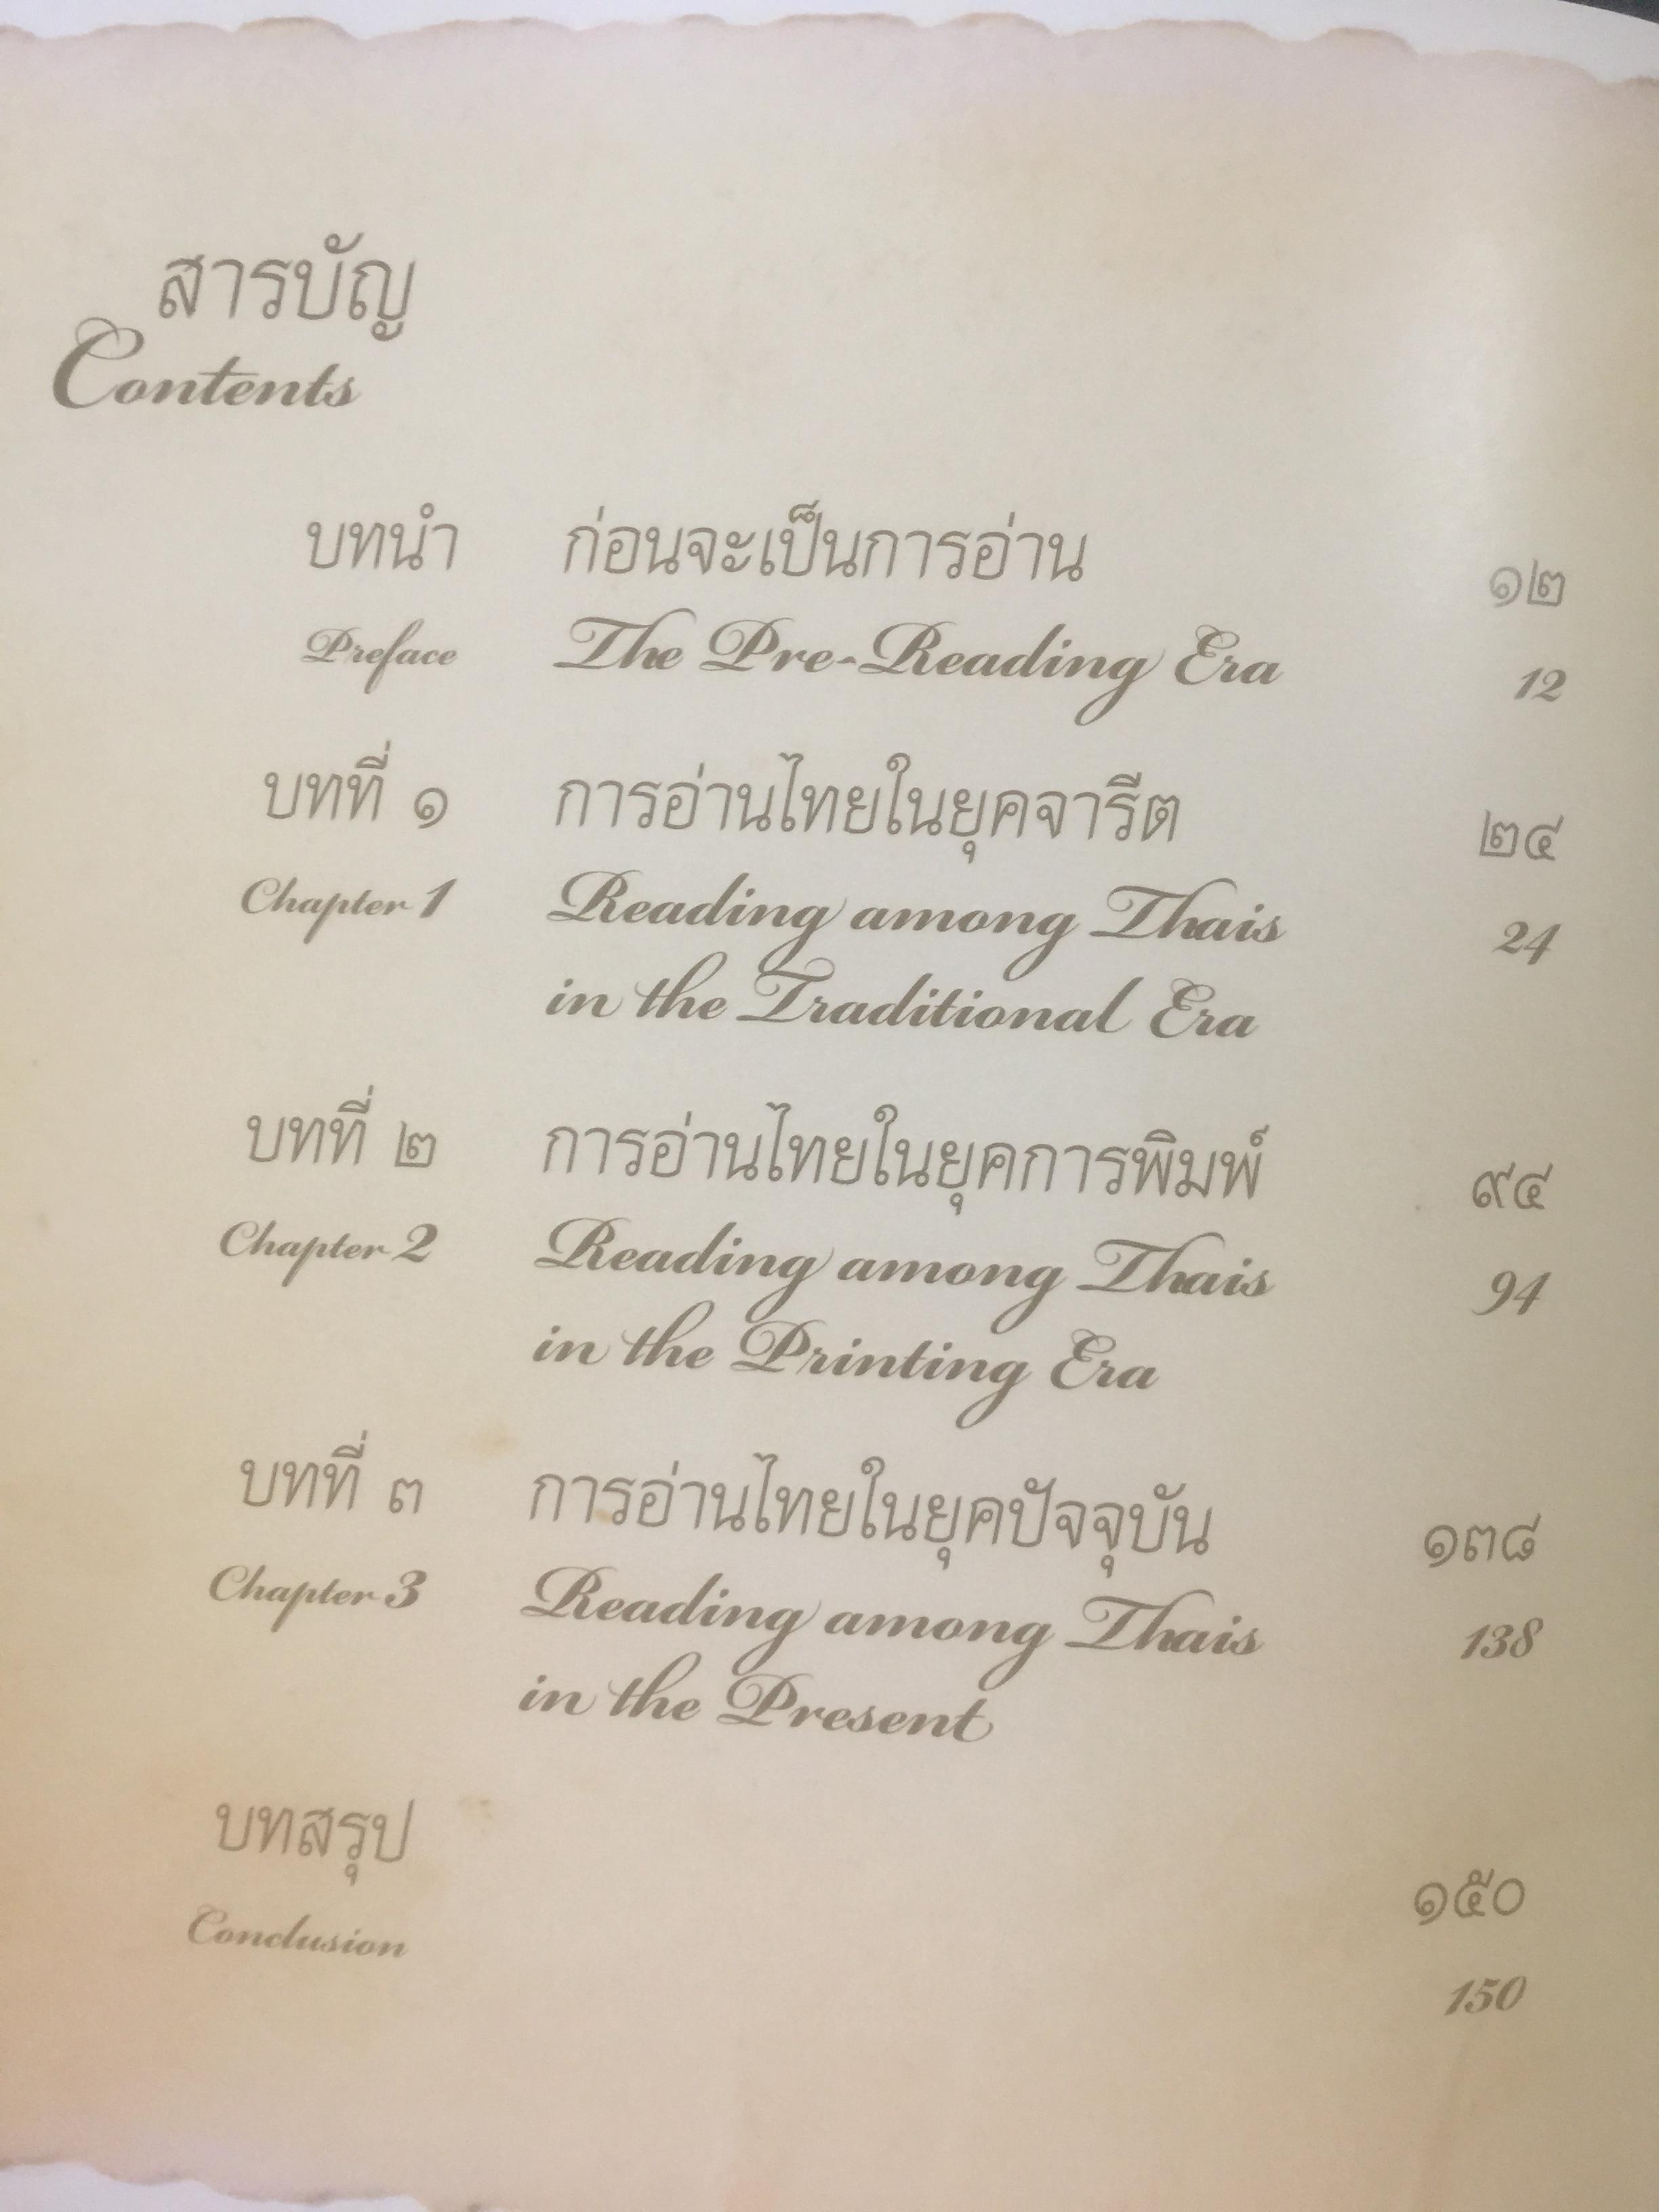 สารบัญ
Contents
บทนำ ก่อนจะเป็นการอ่าน ๑๒
Preface The Pre-Reading Era 12
บทที่ ๑ การอ่านไทยในยุคจารีต ๒๔
Chapter 1 Reading among Thais 24
in the Traditional Era
บทที่ ๒ การอ่านไทยในยุคการพิมพ์ ๙๔
Chapter 2 Reading among Thais 94
in the Printing Era
บทที่ ๓ การอ่านไทยในยุคปัจจุบัน ๑๓๘
Chapter 3 Reading among Thais 138
in the Present
บทสรุป ๑๕๐
Conclusion 150